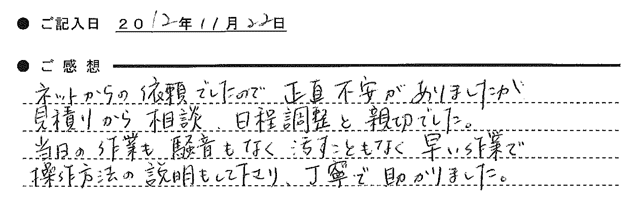 ● ご記入日 2012年11月22日
● ご感想
ネットからの依頼でしたので 正直不安がありましたが
見積りから相談、日程調整と親切でした。
当日の作業も騒音もなく汚すこともなく早い作業で
操作方法の説明もして下さり、丁寧で助かりました。